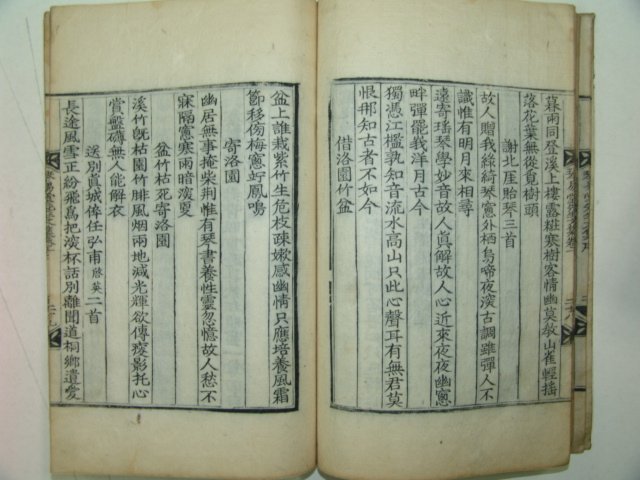 暮雨同登溪上樓露糚寒樹客情幽莫敎山雀輕搖
落花葉無從覓樹頭
謝北厓貽琴三首
故人贈我綠綺琴窓外栖烏啼夜深古調雖彈人不
識惟有明月來相尋
遠寄瑤琴學妙音故人眞解故人心近來夜夜幽窓
畔彈罷峩洋月古今
獨憑江檻孰知音流水高山只此心聲耳有無君莫
恨那知古者不如今
借洛園竹盆
盆上誰栽紫竹生危枝疎嫰感幽情只應培養風霜
節移傍梅窓竚鳳鳴
寄洛園
幽居無事掩柴荆惟有琴書養性靈忽憶故人愁不
寐隔窓寒雨暗滾
盆竹枯死寄洛園
溪竹旣枯園竹腓風烟兩地減光輝欲傳瘦影托心
賞盤礴無人能解衣
送別眞城倅任弘甫二首
長途風雪正紛飛爲把深杯話別離聞道桐鄉遺愛